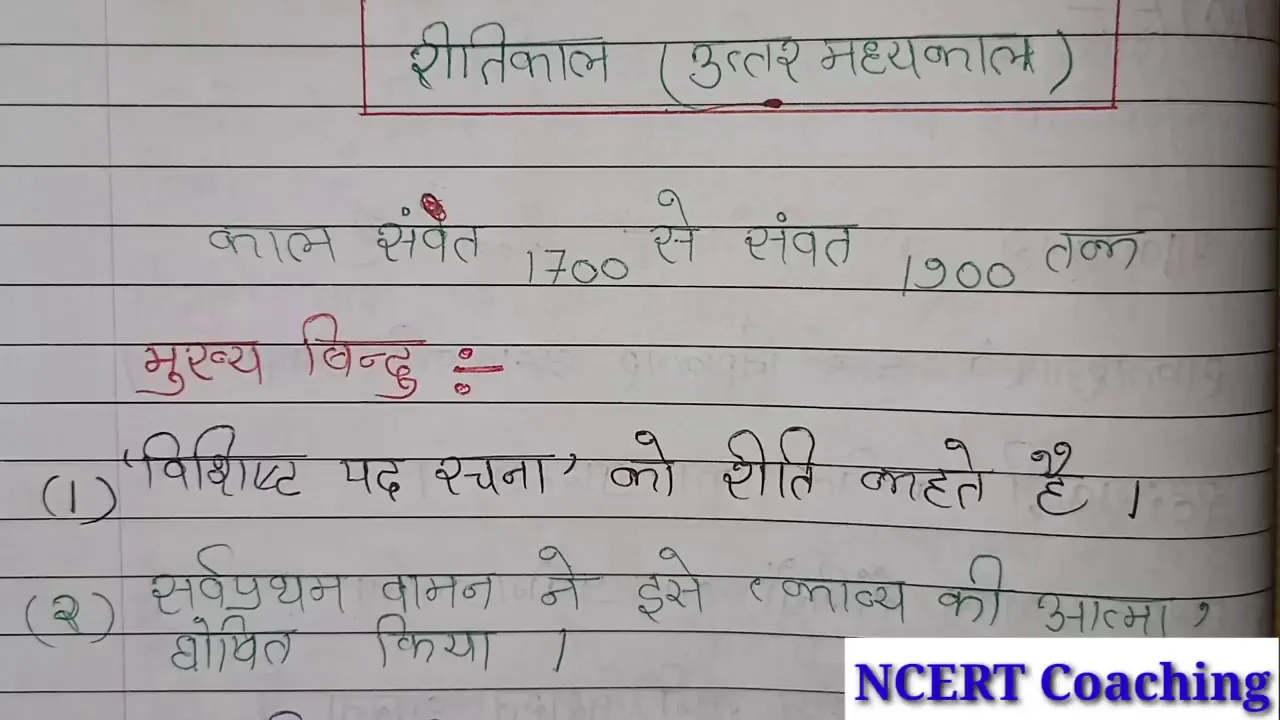 रीतिकाल (उत्तर मध्यकाल)
काल संवत 1700 से संवत 1900 तक
मुख्य बिन्दु :-
(1) 'विशिष्ट पद रचना' को रीति कहते है ।
(२) सर्वप्रथम वामन ने इसे 'काव्य की आत्मा'
घोषित किया ।
NCERT Coaching